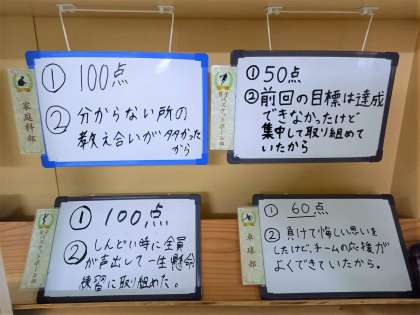 家庭科部
① 100点
② 分からない所の
教え合いが多かった
から
① 50点
② 前回の目標は達成
できなかったけど
集中して取り組めて
いたから
① 100点
② しんどい時に全員
が声出して一生懸命
練習に取り組めた。
卓球部
① 60点
② 負けて悔しい思いを
したけど、チームの応援が
よくできていたから。